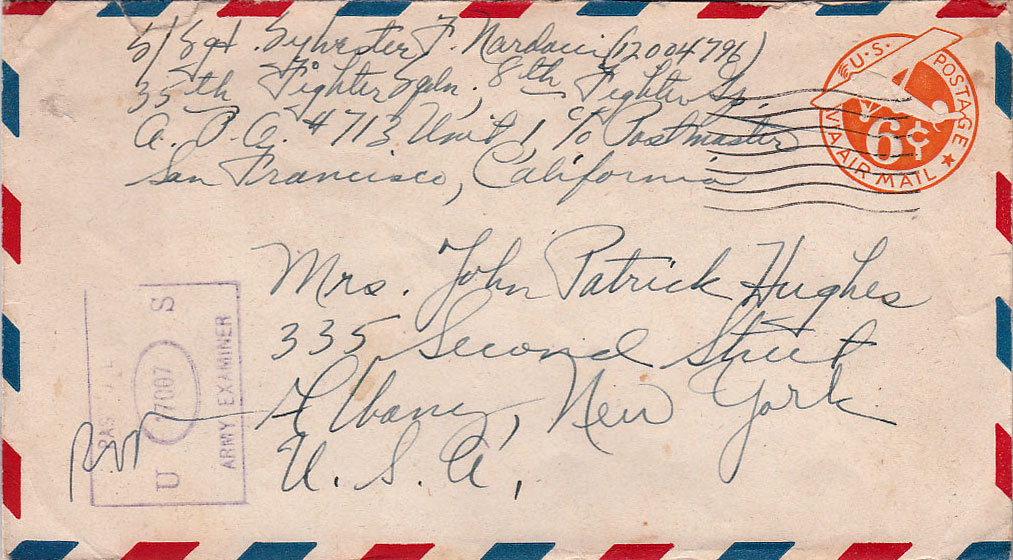 S/Sgt. Sylvester F. Nardacci (12004796)
35th Fighter Sqdn., 8th Fighter Gp.
A. P. O. #713 Unit 1, c/o Postmaster
San Francisco, California
U.S. POSTAGE
6¢
VIA AIR MAIL
Mrs. John Patrick Hughes
335 Second Street
Albany, New York
U. S. A.
U S
17007
ARMY EXAMINER